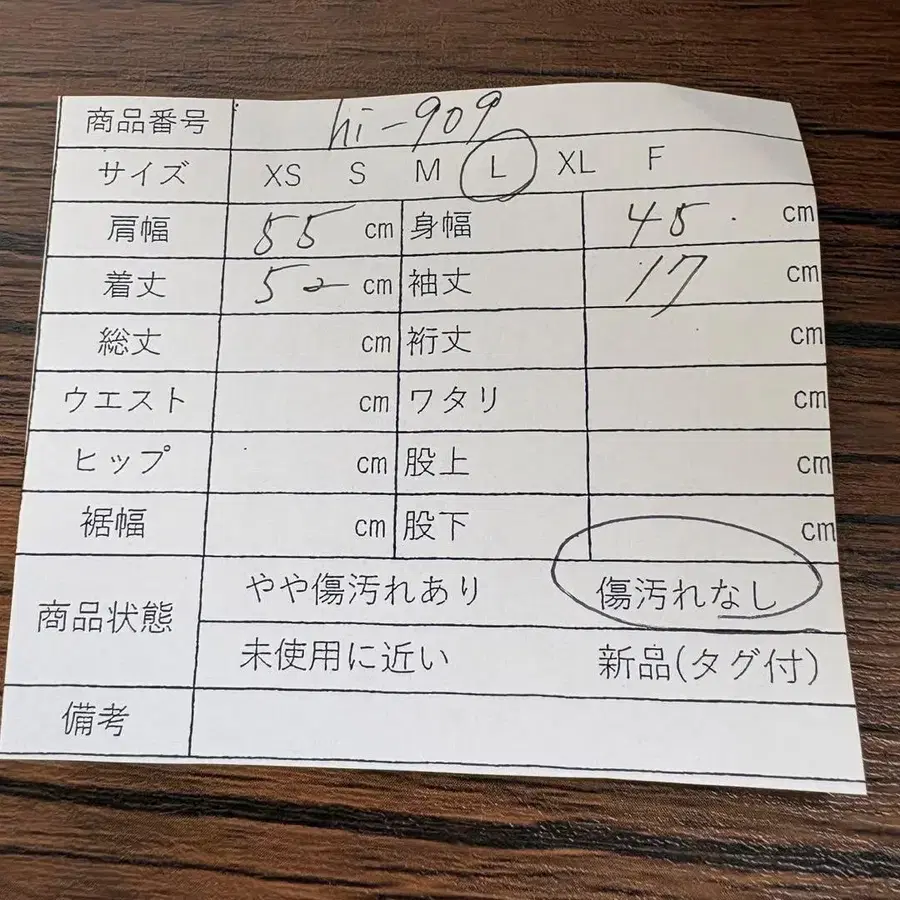 商品番号 hi-909
サイズ XS S M L XL F
肩幅 55 cm 身幅 45 cm
着丈 52 cm 袖丈 17 cm
総丈 cm 裄丈 cm
ウエスト cm ワタリ cm
ヒップ cm 股上 cm
裾幅 cm 股下 cm
商品状態 やや傷汚れあり 傷汚れなし
未使用に近い 新品(タグ付)
備考